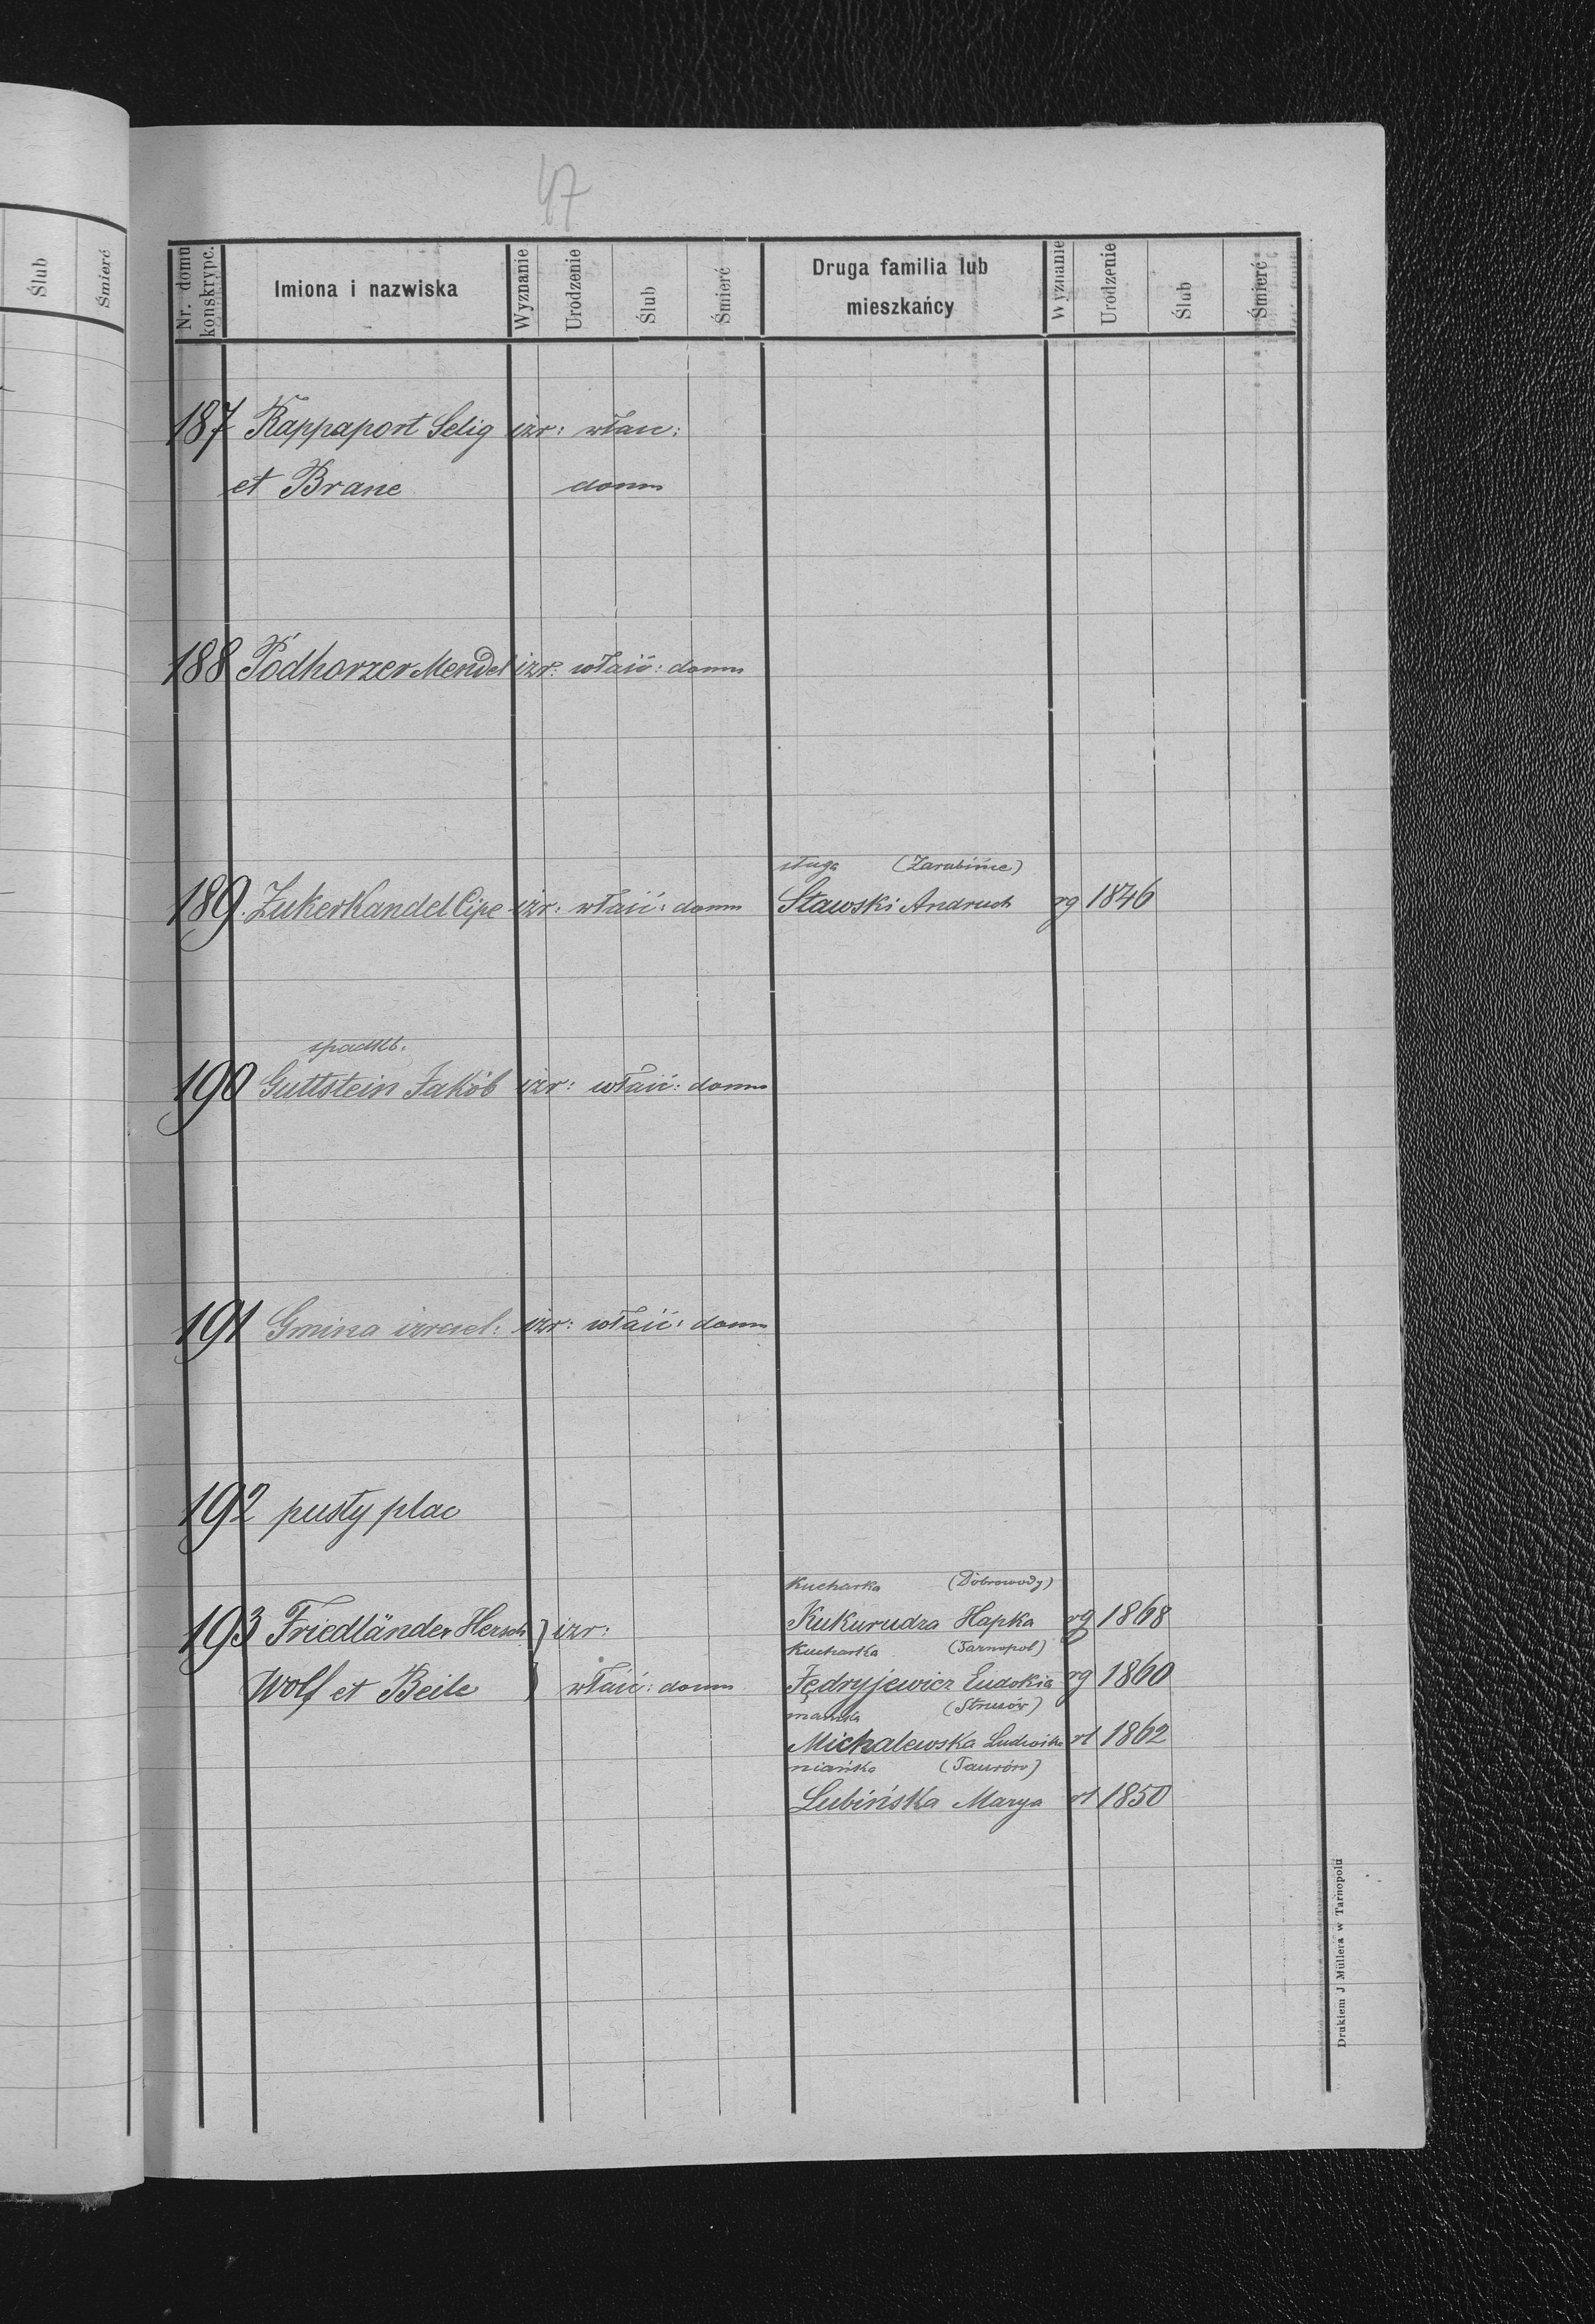 47
Ślub
Śmierć
Nr. domu konskrypc.
Imiona i nazwiska
Wyznanie
Urodzenie
Ślub
Śmierć
Druga familia lub
mieszkańcy
Wyznanie
Urodzenie
Ślub
Śmierć
187 Rappaport Selig izr: właśc:
et Brane domu
188 Podhorzer Mendel izr: właśc: domu
sługa (Zarubińce)
189. Zukerkandel Cipe izr: właśc: domu Sławski Andruch rg 1846
spadkb.
190 Guttstein Jakób izr: właśc: domu
191 Gmina izrael: izr: właśc: domu
192 pusty plac
Kucharka (Dobrowody)
193 Friedländer Hersch } izr: Kukurudza Hapka rg 1868
Kucharka (Tarnopol)
Wolf et Beile } właśc: domu Jędryjewicz Eudokia rg 1860
mamka (Strusów)
Michalewska Ludwika rł 1862
niańka (Taurów)
Lubińska Marya rł 1850
Drukiem J Müllera w Tarnopolu